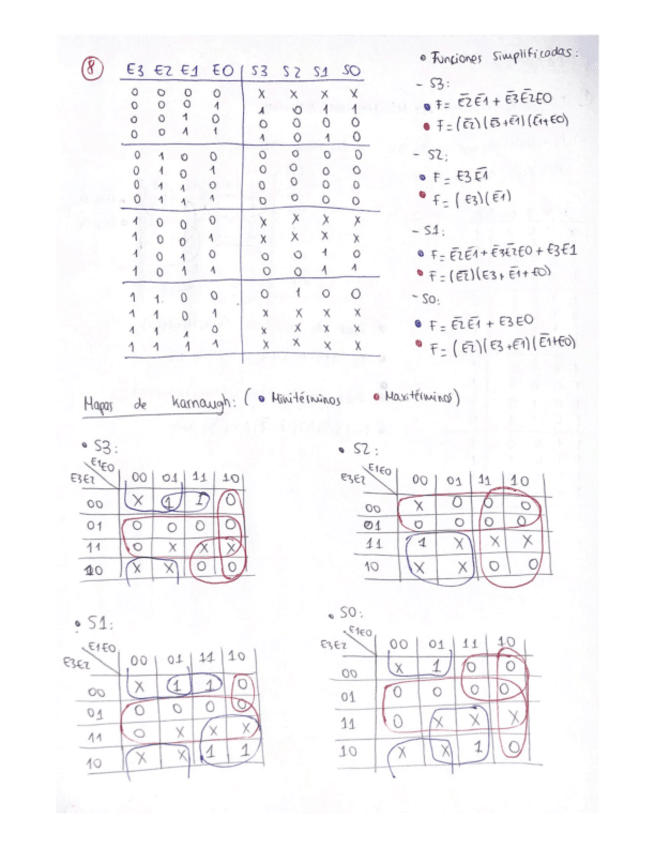 8
E3 E2 E1 E0 S3 S2 S1 S0
0 0 0 0 X X X X
0 0 0 1 1 0 1 1
0 0 1 0 0 0 0 0
0 0 1 1 1 0 1 0
0 1 0 0 0 0 0 0
0 1 0 1 0 0 0 0
0 1 1 0 0 0 0 0
0 1 1 1 0 0 0 0
1 0 0 0 X X X X
1 0 0 1 X X X X
1 0 1 0 0 0 1 0
1 0 1 1 0 0 1 1
1 1 0 0 0 1 0 0
1 1 0 1 X X X X
1 1 1 0 X X X X
1 1 1 1 X X X X
• Funciones simplificadas:
- S3:
• F = E̅2̅E̅1̅ + E̅3̅E̅2̅E0
• F = (E̅2̅)(E̅3̅+E̅1̅)(E̅1̅+E0)
- S2:
• F = E3E̅1̅
• F = (E3)(E̅1̅)
- S1:
• F = E̅2̅E̅1̅ + E̅3̅E̅2̅E0 + E3E1
• F = (E̅2̅)(E3+E̅1̅+E0)
- S0:
• F = E̅2̅E̅1̅ + E3E0
• F = (E̅2̅)(E3+E̅1̅)(E̅1̅+E0)
Mapas de Karnaugh: ( • Minitérminos • Maxitérminos)
• S3:
E1E0
E3E2 00 01 11 10
00 X 1 1 0
01 0 0 0 0
11 0 X X X
10 X X 0 0
• S2:
E1E0
E3E2 00 01 11 10
00 X 0 0 0
01 0 0 0 0
11 1 X X X
10 X X 0 0
• S1:
E1E0
E3E2 00 01 11 10
00 X 1 1 0
01 0 0 0 0
11 0 X X X
10 X X 1 1
• S0:
E1E0
E3E2 00 01 11 10
00 X 1 0 0
01 0 0 0 0
11 0 X X X
10 X X 1 0